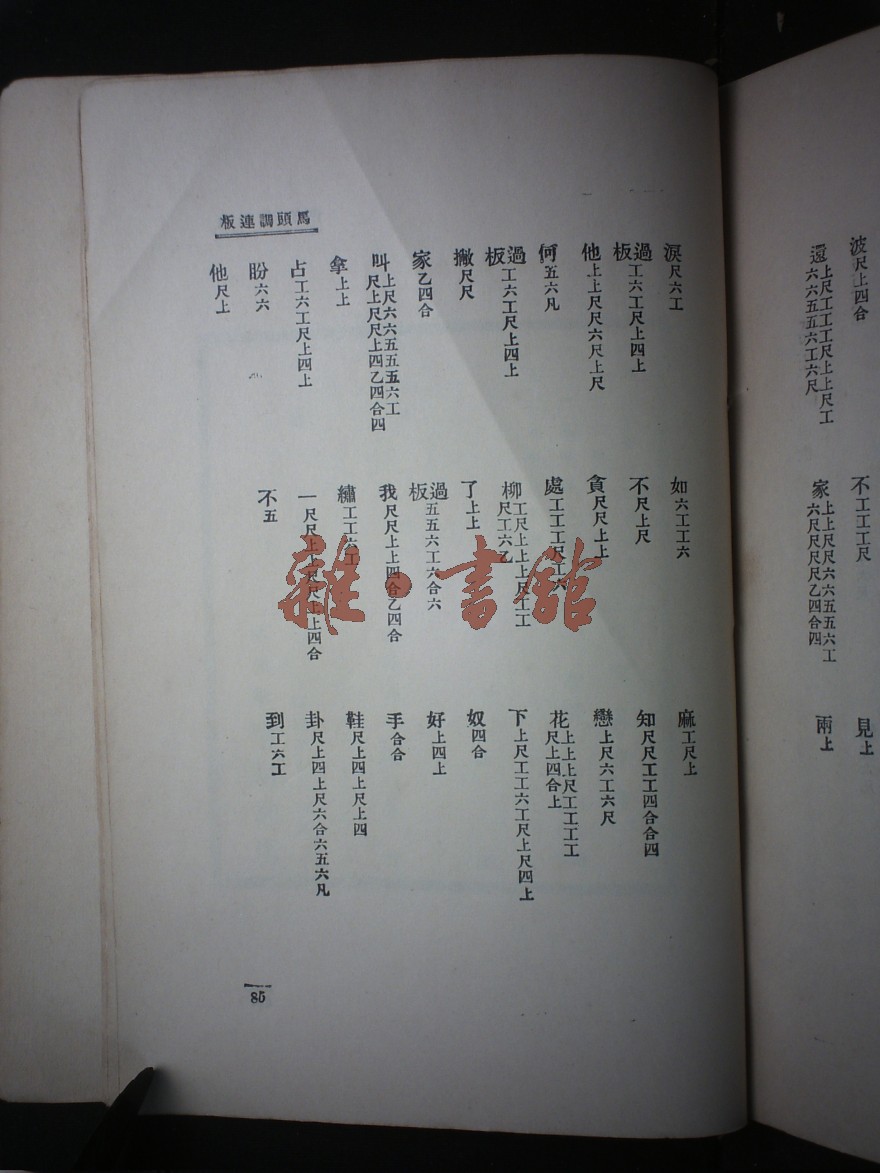 波尺上四合
不工工工尺
見上
還上尺工工工尺上上尺工
六六五五六工六尺
家上上尺尺六六五五六工
六尺尺尺尺乙四合四
兩上
馬頭調連板
淚尺六工
如六工工六
麻工尺上
過板工六工尺上四上
不尺上尺
知尺尺工工四合合四
他上上尺尺六尺上尺
貪尺尺上上
戀上尺六工六尺
何五六凡
處工工工尺
花上上上尺工工工工
尺上四合上
過板工六工尺上四上
柳工尺上上上尺工工
尺工六乙
下上尺工工六工尺上尺四上
撇尺尺
了上上
奴四合
家乙四合
過板五五六工六合六
好上四上
叫上尺六六五五五六工
尺上尺尺上四乙四合四
我尺尺上上四合乙四合
手合合
拿上上
繡工工六工
鞋尺上四上尺上四
占工六工尺上四上
一尺尺上上尺尺上上四合
卦尺上四上尺六合六五六凡
盼六六
不五
到工六工
他尺上
85
雜·書館